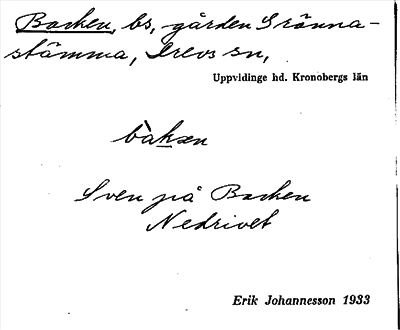 Backen, bs, gården Gränna-
stämma, Drevs sn,
Uppvidinge hd. Kronobergs län
bàkæn
Sven på Backen
Nedrivet
Erik Johannesson 1933